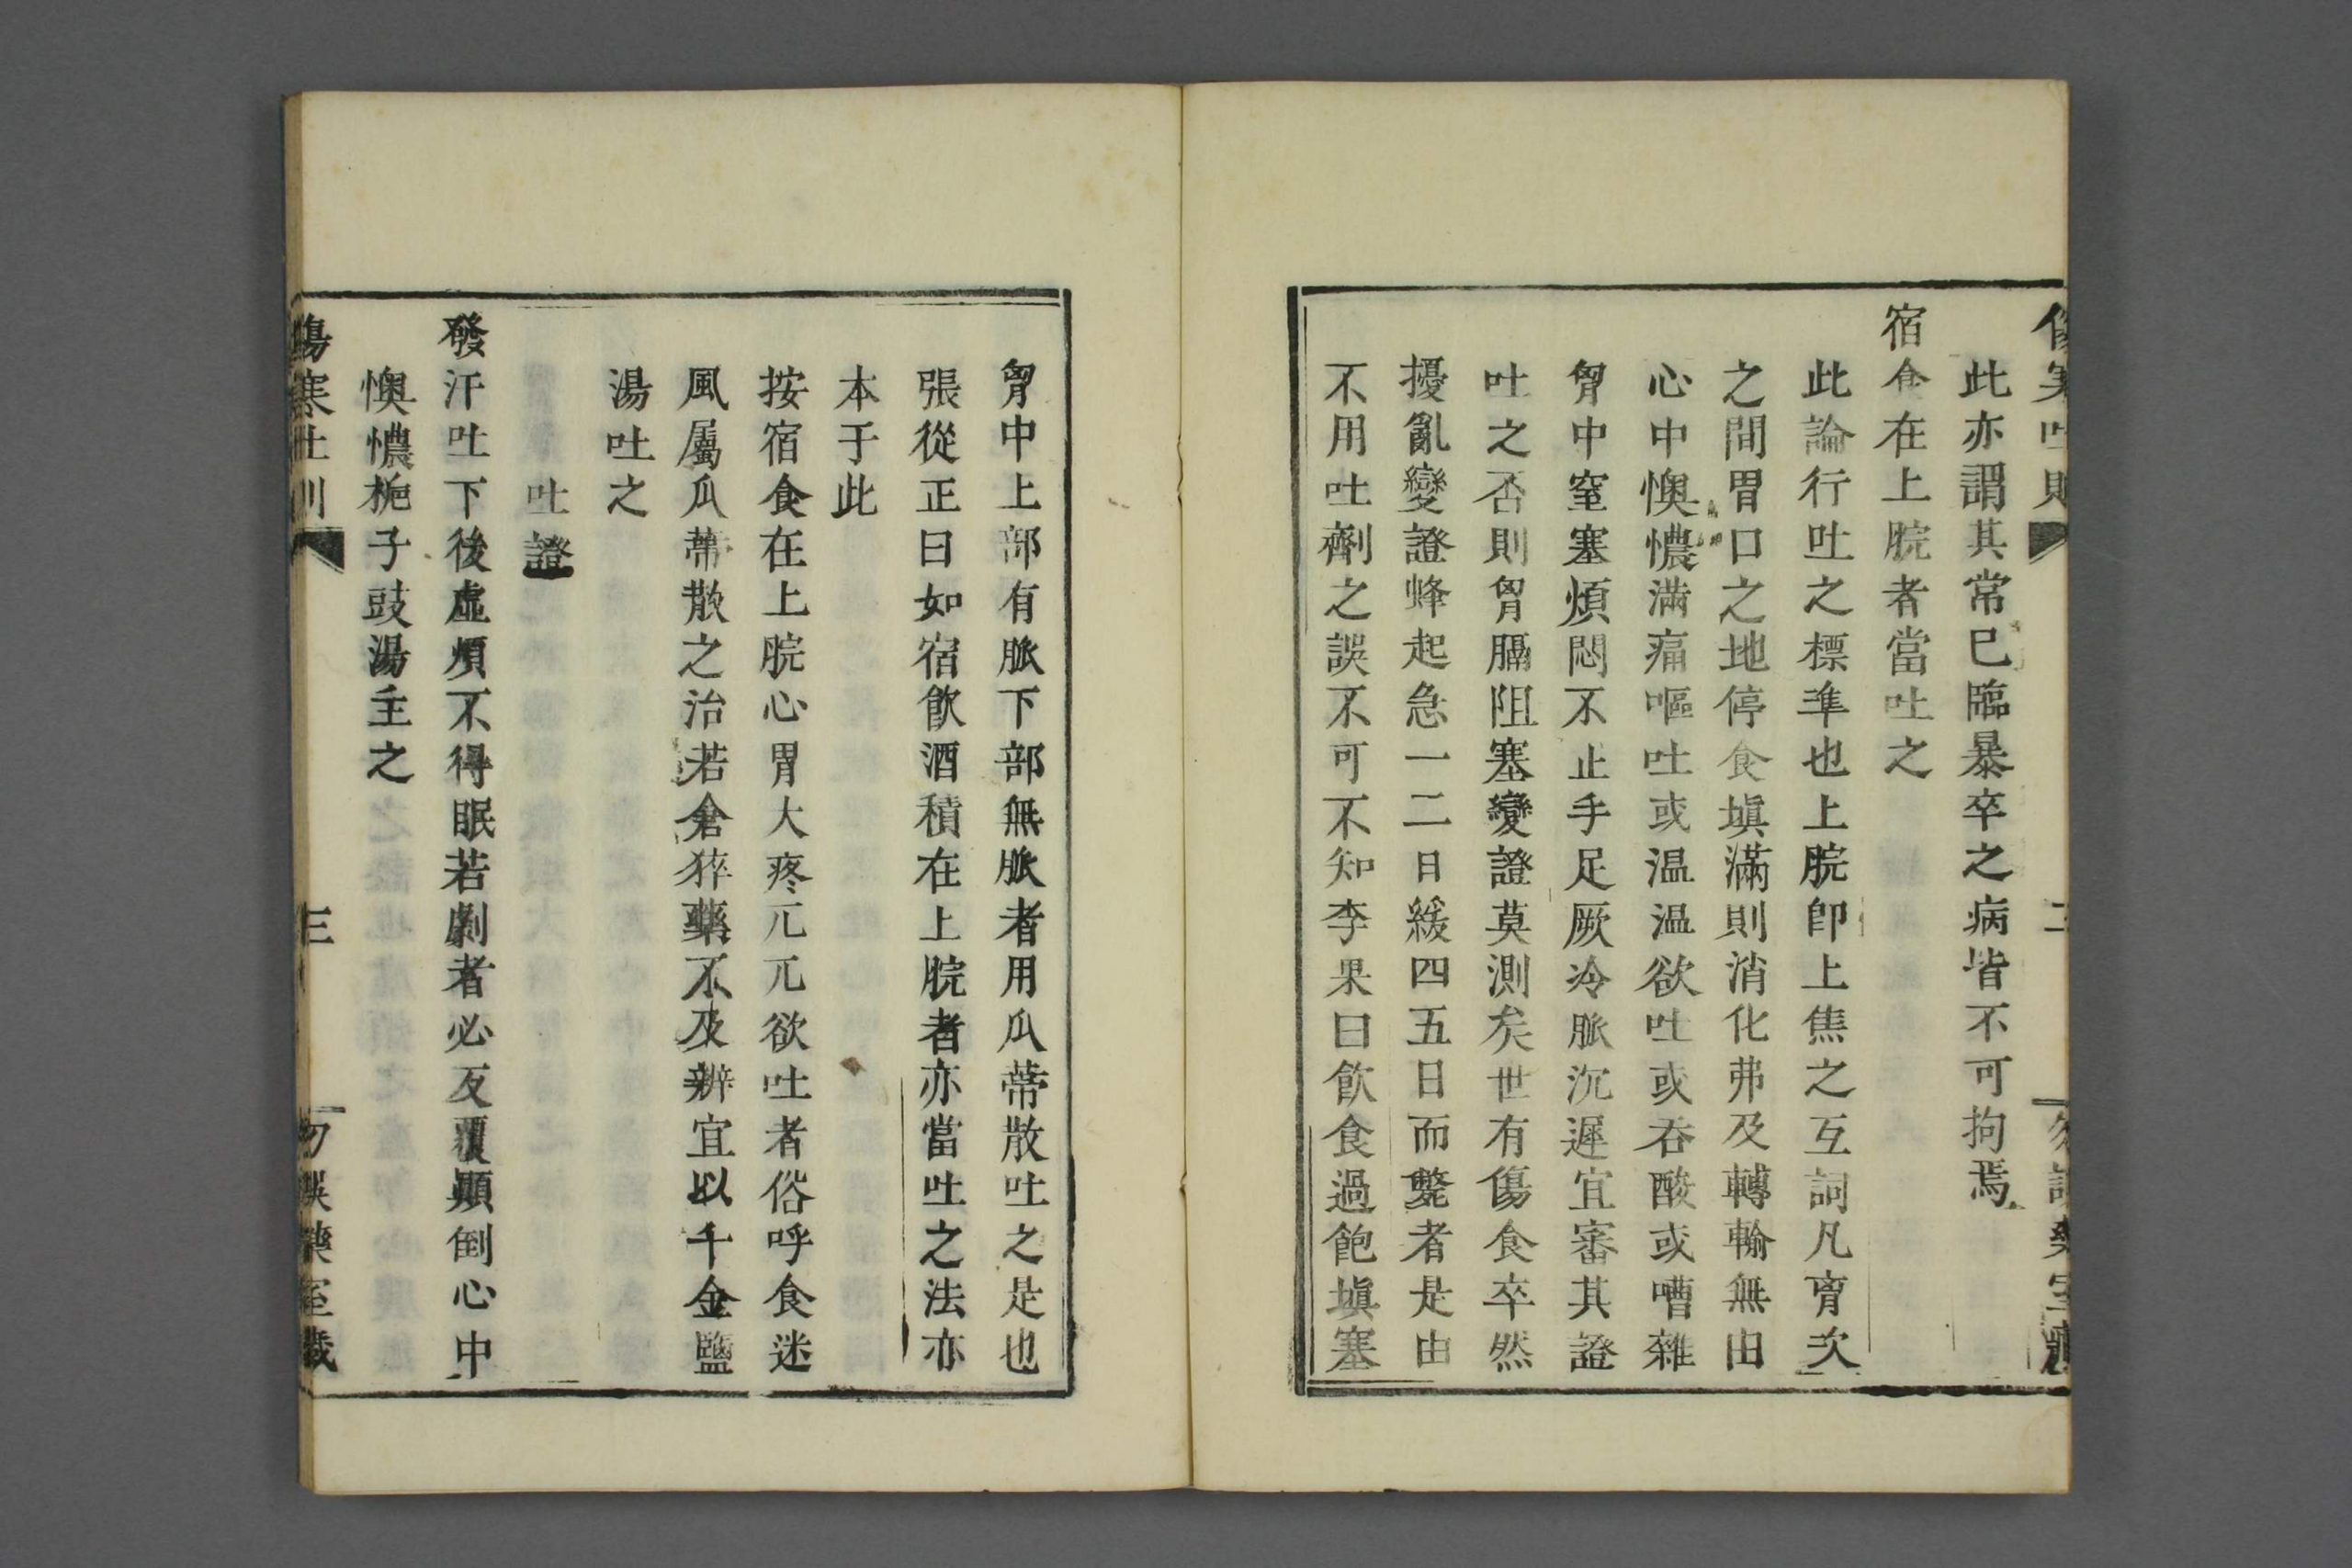 此亦謂其常已臨暴卒之病皆不可拘焉
宿食在上脘者當吐之
此論行吐之標準也上脘卽上焦之互詞凡育次
之間胃口之地停食塡滿則消化弗及轉輸無由
心中懊憹滿痛嘔吐或温温欲吐或吞酸或嘈雜
胷中窒塞煩悶不止手足厥冷脈沉遲宜審其證
吐之否則胷膈阻塞變證莫測矣世有傷食卒然
擾亂變證蜂起急一二日緩四五日而斃者是由
不用吐劑之誤不可不知李杲曰飮食過飽塡塞
胷中上部有脈下部無脈者用瓜蔕散吐之是也
張從正曰如宿飮酒積在上脘者亦當吐之法亦
本于此
按宿食在上脘心胃大疼兀兀欲吐者俗呼食迷
風屬瓜蔕散之治若倉猝藥不及辨宜以千金鹽
湯吐之
吐證
發汗吐下後虛煩不得眠若劇者必反覆顚倒心中
懊憹梔子豉湯主之
傷寒吐則 三 勿誤藥室藏